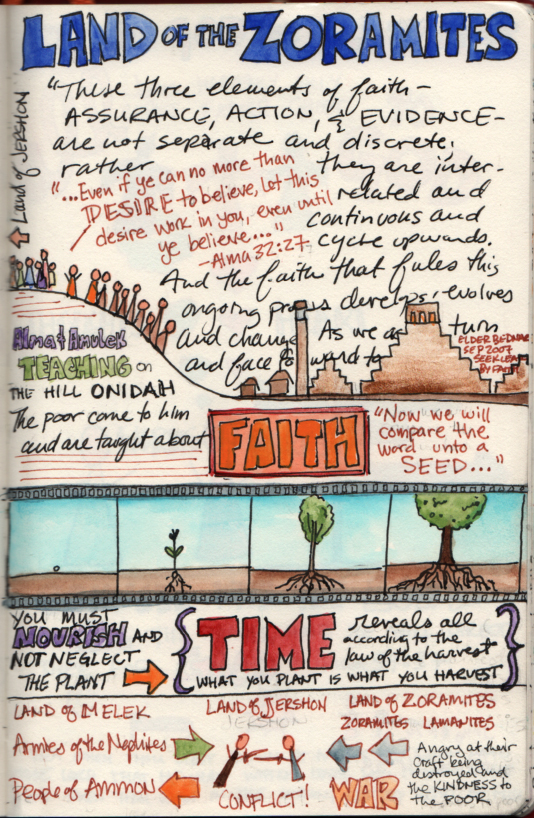 LAND OF THE ZORAMITES
Land of JERSHON
"These three elements of faith-
ASSURANCE, ACTION, & EVIDENCE-
are not separate and discrete;
rather they are inter-
related and
continuous and
cycle upwards.
And the faith that fules this
ongoing process develops, evolves
and change As we as turn
and face toward to
"...Even if ye can no more than
DESIRE to believe, let this
desire work in you, even until
ye believe..."
-Alma 32:27
ELDER BEDNAR
SEP 2007
SEEK LEARN
BY FAITH
Alma & Amulek
TEACHING on
THE HILL ONIDAH
The poor come to him
and are taught about
FAITH
"Now we will
compare the
word unto a
SEED..."
YOU MUST
NOURISH AND
NOT NEGLECT
THE PLANT
TIME reveals all
according to the
law of the harvest
WHAT YOU PLANT IS WHAT YOU HARVEST
LAND of MELEK
LAND of JERSHON
JERSHON
LAND of ZORAMITES
ZORAMITES LAMANITES
Armies of the Nephites
People of Ammon
CONFLICT!
WAR
Angry at their
craft being
destroyed and
the KINDNESS to
the POOR